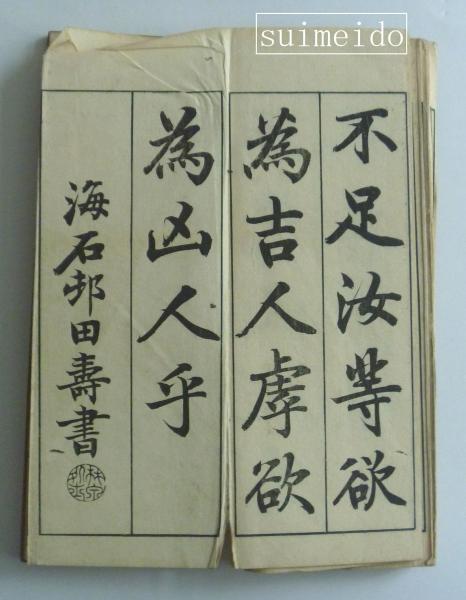 suimeido
不足汝等欲
為吉人虖欲
為凶人乎
海石邨田壽書